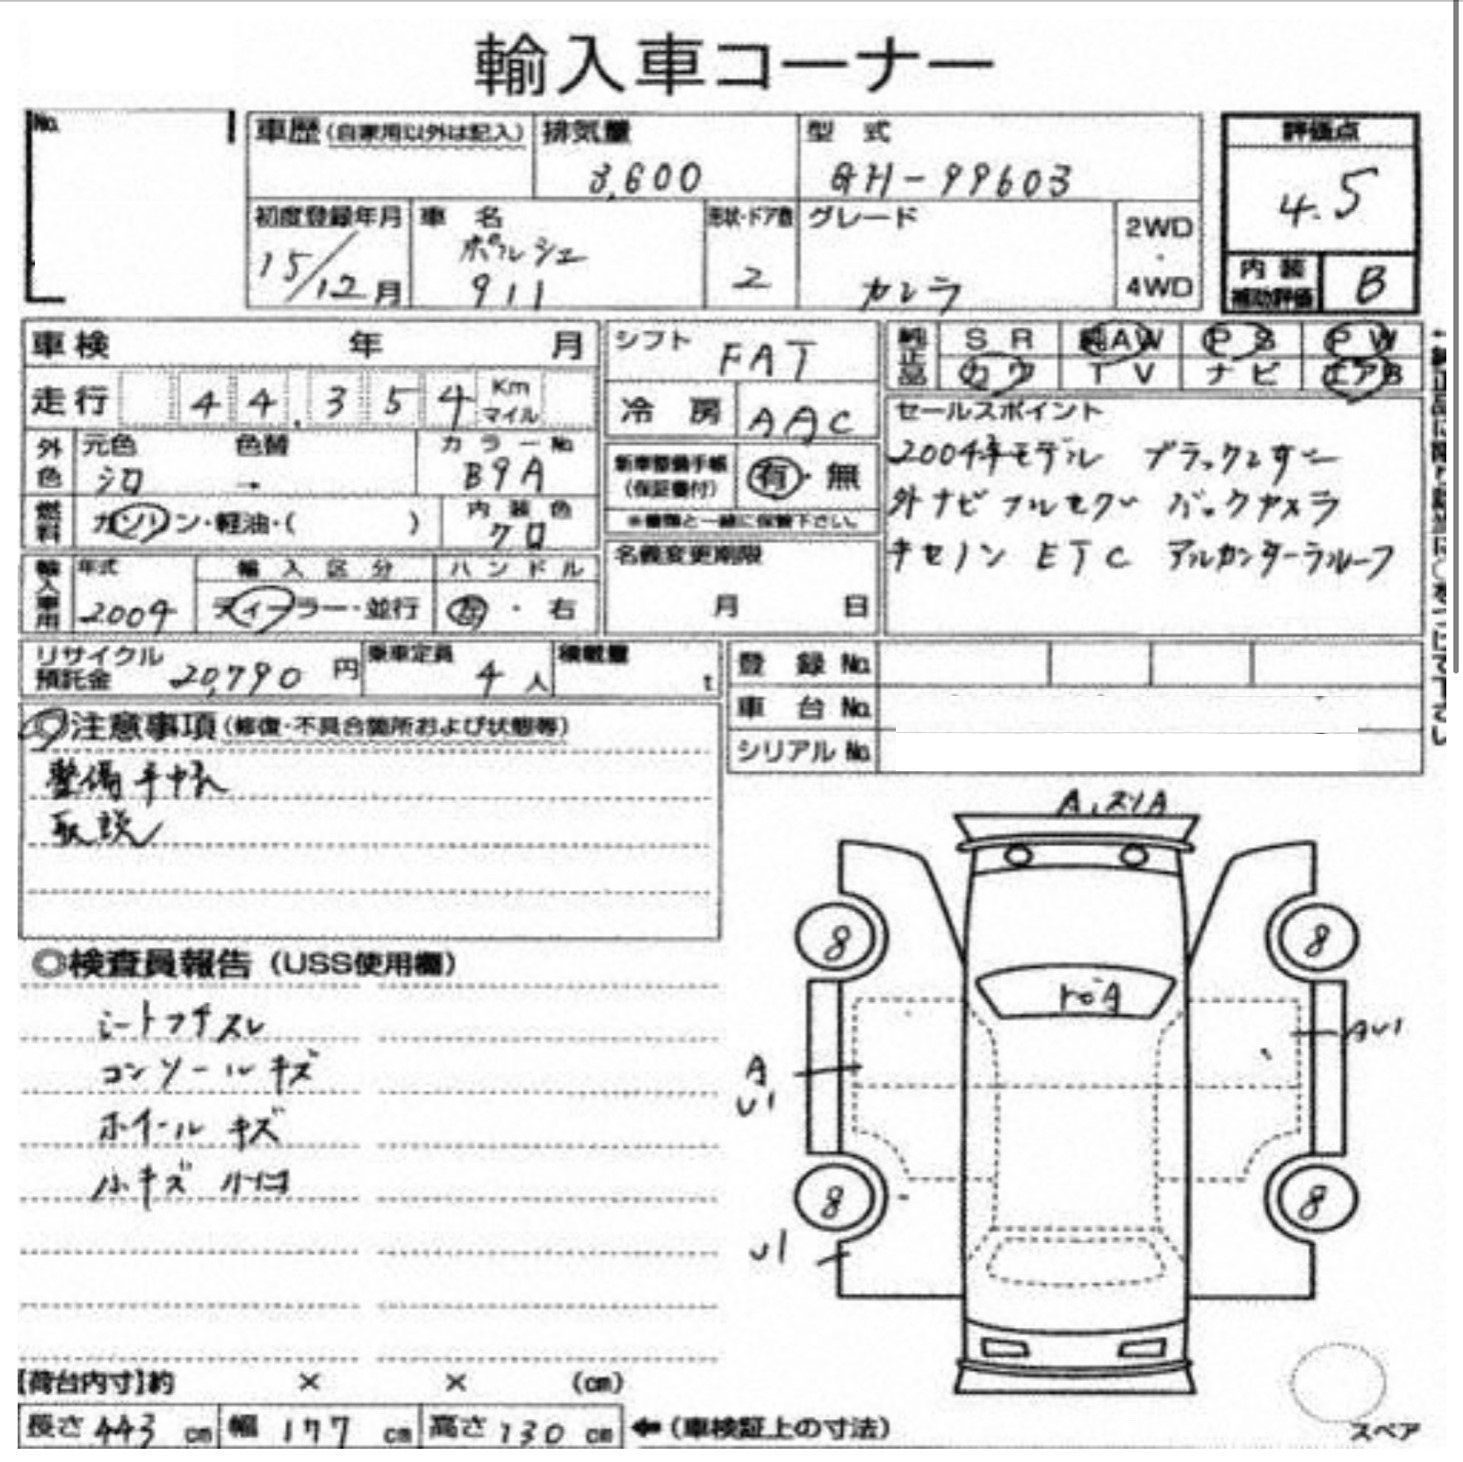 輸入車コーナー
No.
車歴(自家用以外は記入)
排気量
3,600
型 式
GH-99603
評価点
4.5
初度登録年月
15/12月
車 名
ポルシェ
911
形状・ドア数
2
グレード
カレラ
2WD
・
4WD
内装
補助評価
B
車検 年 月
走行 44,354 Km マイル
シフト
FAT
冷 房 AAC
純正品
SR 純AW PS PW
カワ TV ナビ エアB
外色
元色 色替
沼 →
カラーNo.
B9A
新車整備手帳
(保証書付)
有・無
※書類と一緒に保管下さい。
セールスポイント
2004年モデル ブラックレザー
外ナビ フルセグ バックカメラ
キセノン ETC アルカンターラルーフ
燃料
ガソリン・軽油・( )
内装色
クロ
名義変更期限
月 日
輸入車用
年式
2004
輸入区分
ディーラー・並行
ハンドル
左・右
リサイクル
預託金
20,790円
乗車定員
4人
積載量
t
登 録 No.
車 台 No.
シリアル No.
注意事項(修復・不具合箇所および状態等)
整備手帳
取説
◎検査員報告(USS使用欄)
シートフチスレ
コンソールキズ
ホイールキズ
小キズ 小凹
A、スリA
8
8
トビA
A
U1
AU1
8
8
U1
【荷台内寸】約 × × (cm)
長さ 443 cm 幅 177 cm 高さ 130 cm ←(車検証上の寸法)
スペア